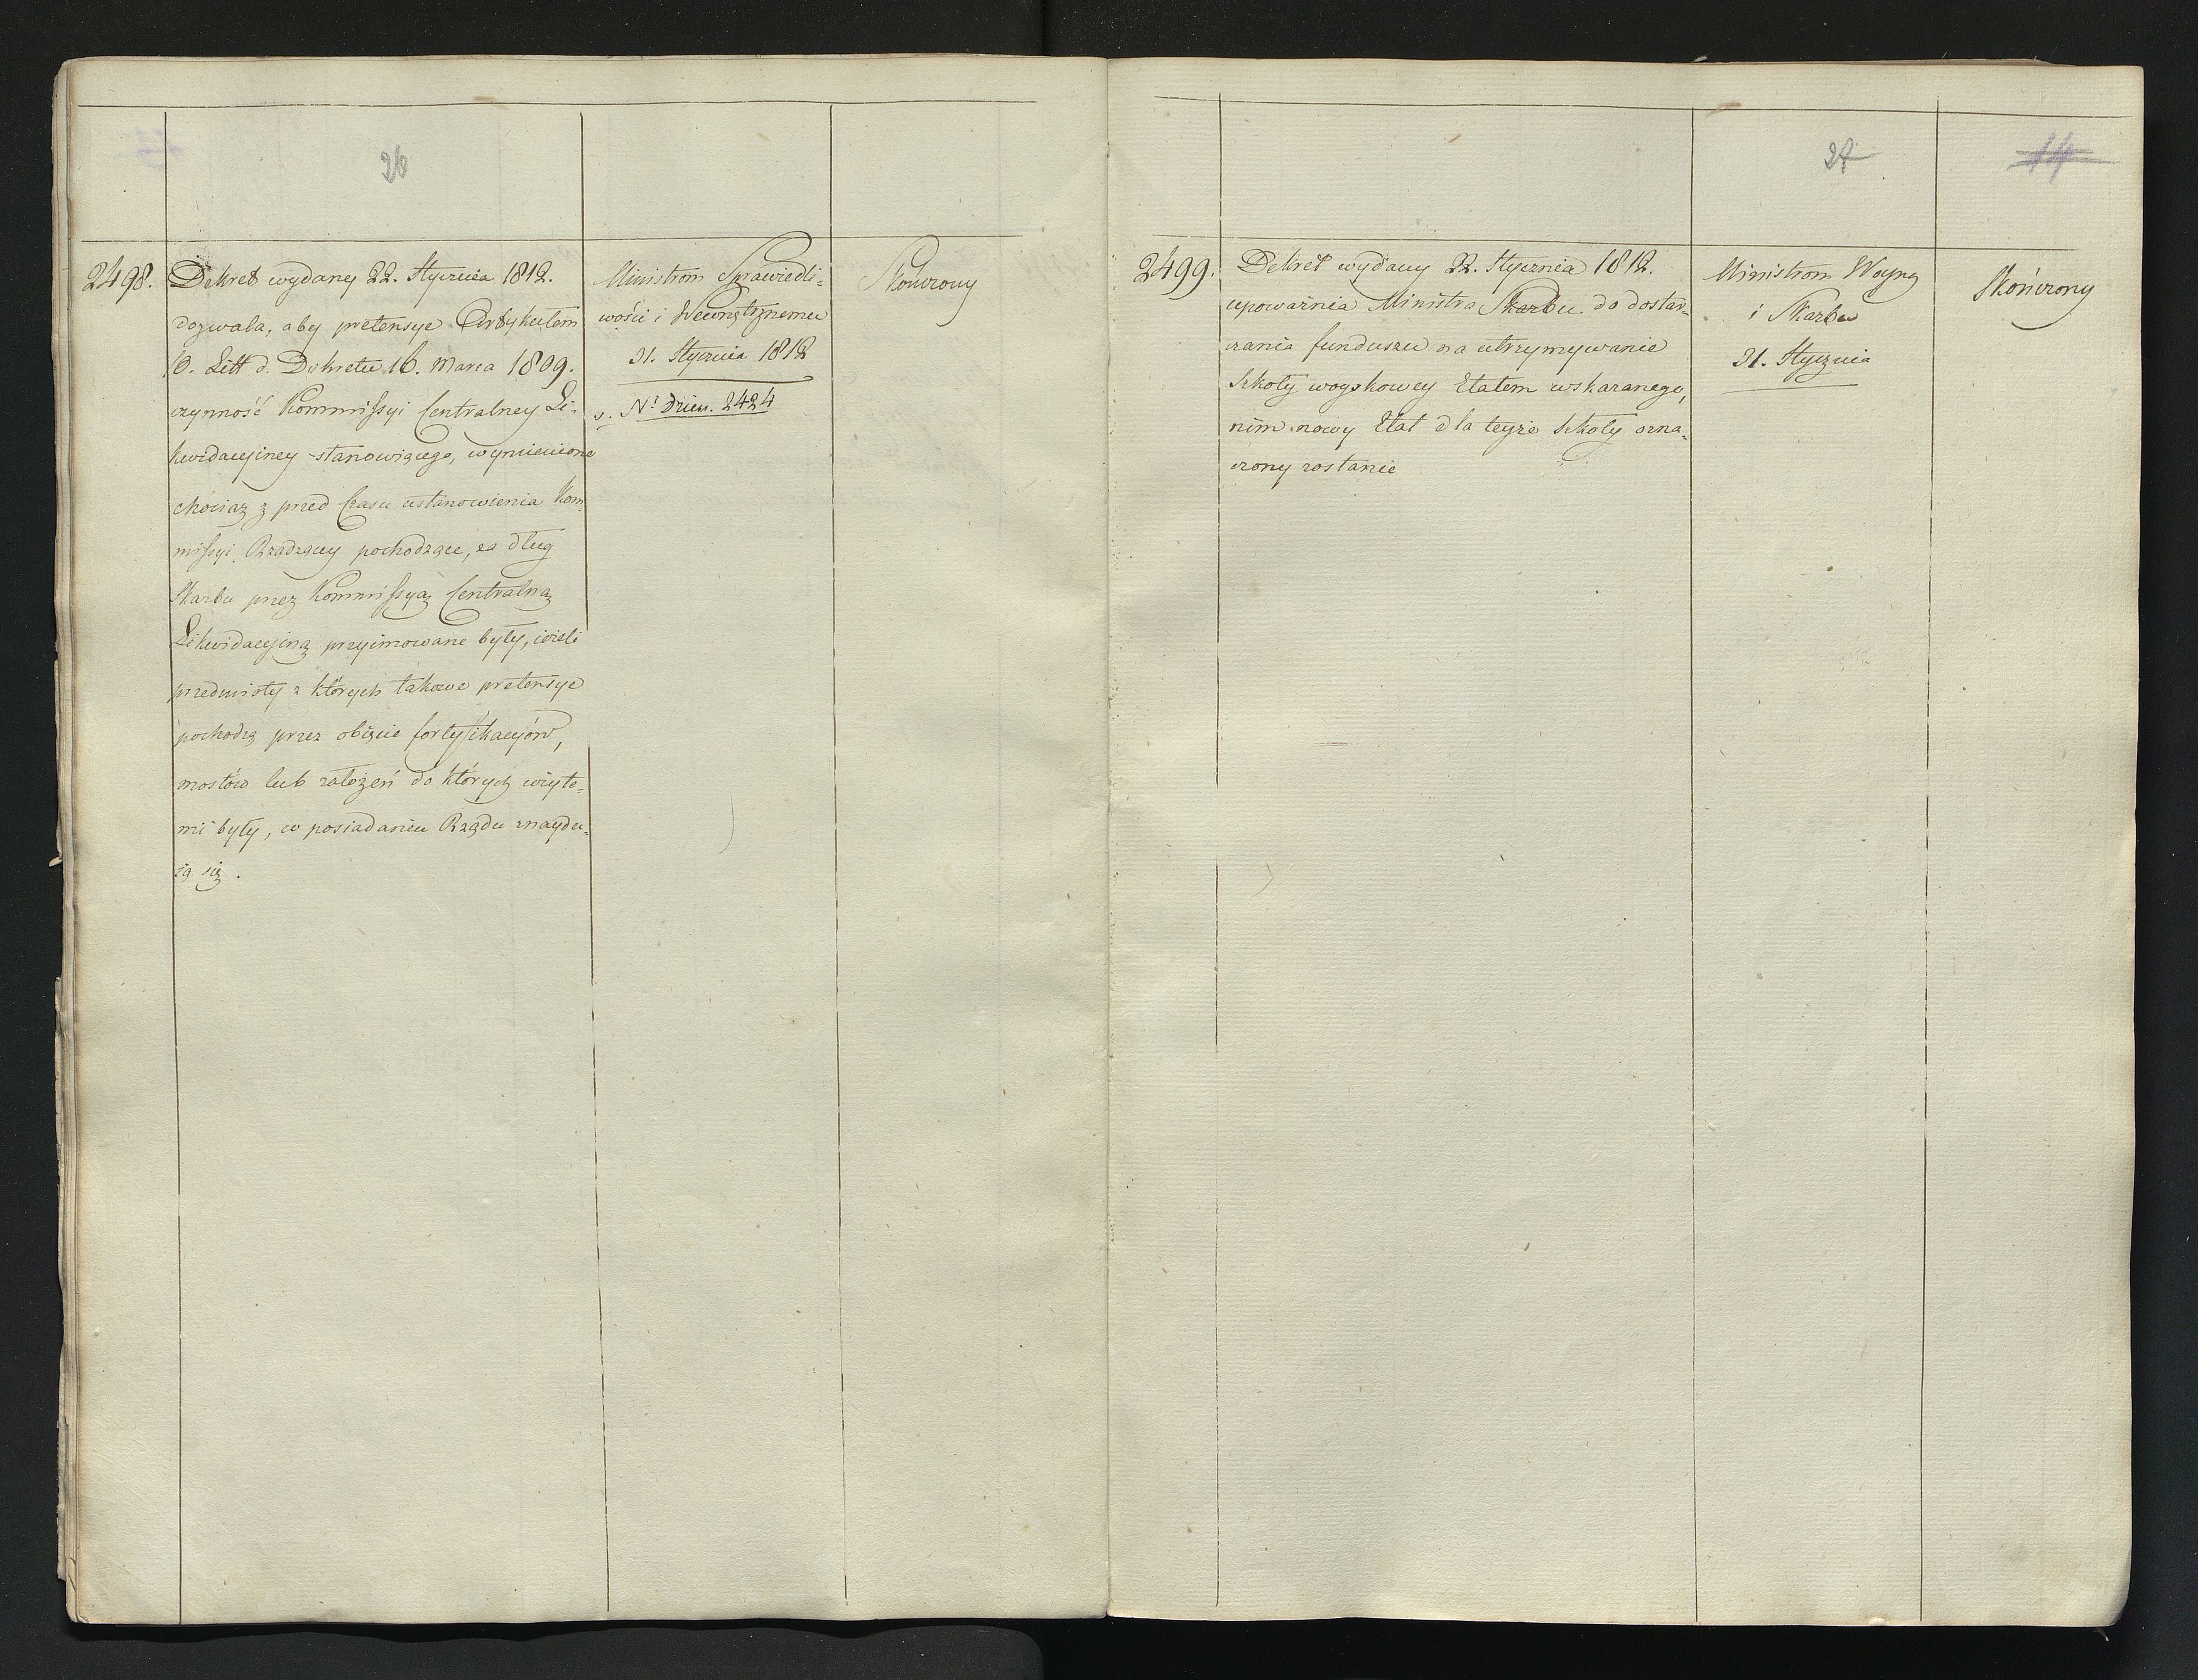 26
2498.
Dekret wydany 22. Stycznia 1812.
dozwala, aby pretensye Artykułem
10. Litt d. Dekretu 16. Marca 1809.
czynność Kommissyi Centralney Li-
kwidacyiney stanowiącego, wymienione
chociaz z przed Czasu ustanowienia Kom
missyi Rządzącey pochodzące, za dług
Skarbu przez Kommissyą Centralną
Likwidacyiną przyimowane były, ieżeli
przedmioty z których takowe pretensye
pochodzą przez obięcie fortyfikacyów,
mostów lub założeń do których użyte-
mi były, w posiadaniu Rządu znaydu-
ią się.
Ministrom Sprawiedli-
wości i Wewnętrznemu
31. Stycznia 1812
v. Nr Dzien. 2424
Skończony
27
14
2499.
Dekret wydany 22. Stycznia 1812.
upoważnia Ministra Skarbu do dostar-
czania funduszu na utrzymywanie
Szkoły woyskowey Etatem wskazanego,
nim nowy Etat dla teyże Szkoły ozna-
czony zostanie
Ministrom Woyny
i Skarbu
31. Stycznia
Skończony